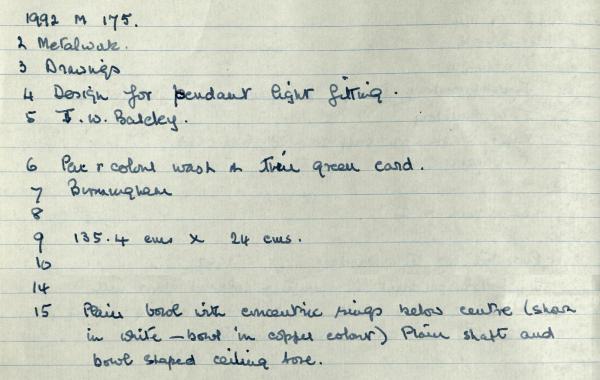 1992 M 175.
2 Metalwork.
3 Drawings
4 Design for pendant light fitting.
5 W. Barclay.
6 Pen & colour wash on green card.
7 Birmingham
8
9 135.4 cms x 24 cms.
10
14
15 Plain bowl with concentric rings below centre (shown
in white – bowl in copper colour) Plain shaft and
bowl shaped ceiling rose.